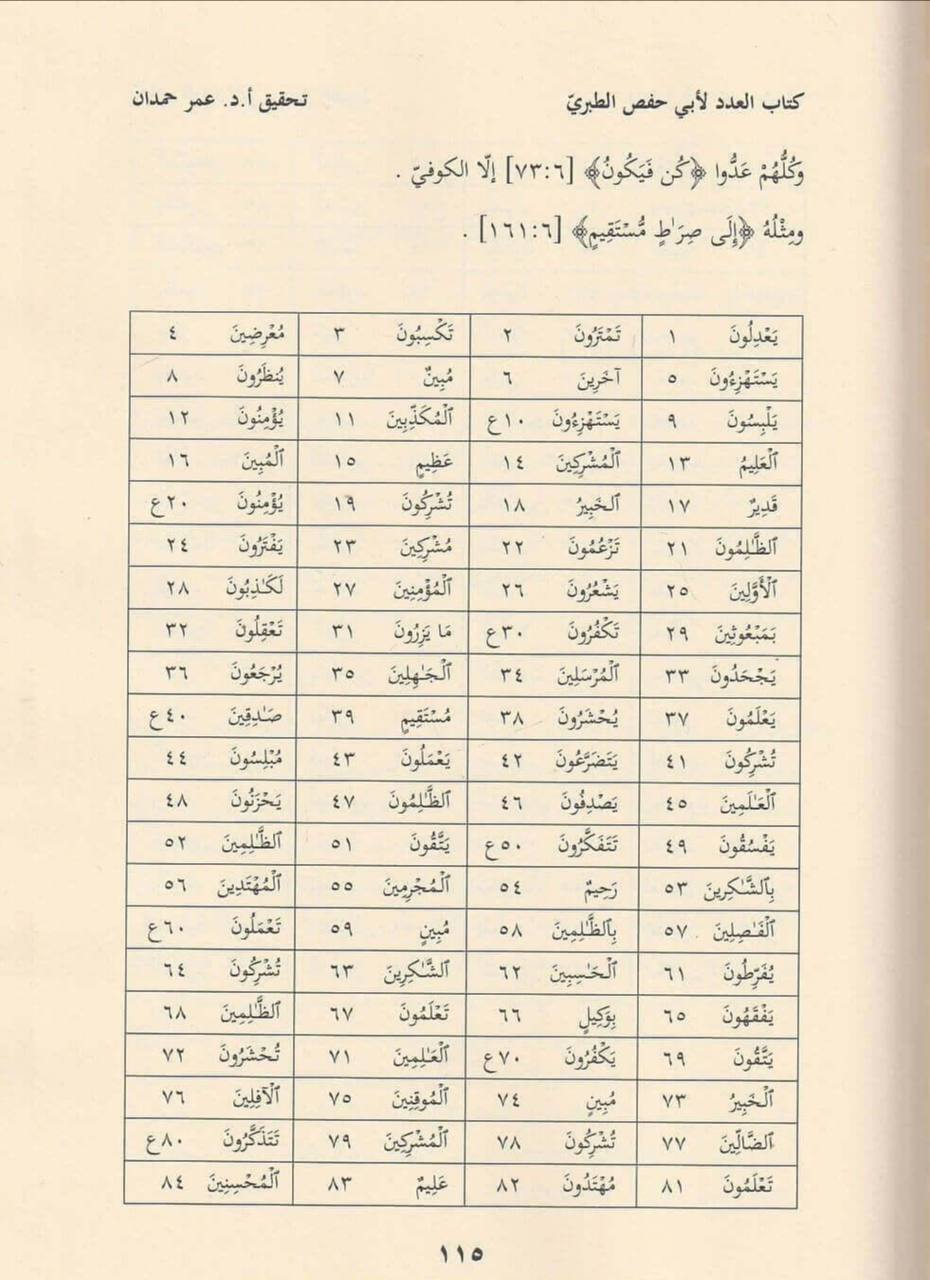 كتاب العدد لأبي حفص الطبريّ تحقيق أ.د. عمر حمدان
وَكُلُّهُمْ عَدُّوا ﴿كُن فَيَكُونُ﴾ [٧٣:٦] إلّا الكوفيّ .
ومِثْلُهُ ﴿إِلَى صِرَٰطٍ مُّسْتَقِيمٍ﴾ [١٦١:٦] .
يَعْدِلُونَ ١ تَمْتَرُونَ ٢ تَكْسِبُونَ ٣ مُعْرِضِينَ ٤
يَسْتَهْزِءُونَ ٥ آخَرِينَ ٦ مُبِينٌ ٧ يُنظَرُونَ ٨
يَلْبِسُونَ ٩ يَسْتَهْزِءُونَ ١٠ع ٱلْمُكَذِّبِينَ ١١ يُؤْمِنُونَ ١٢
ٱلْعَلِيمُ ١٣ ٱلْمُشْرِكِينَ ١٤ عَظِيمٍ ١٥ ٱلْمُبِينَ ١٦
قَدِيرٌ ١٧ ٱلْخَبِيرُ ١٨ تُشْرِكُونَ ١٩ يُؤْمِنُونَ ٢٠ع
ٱلظَّـٰلِمُونَ ٢١ تَزْعُمُونَ ٢٢ مُشْرِكِينَ ٢٣ يَفْتَرُونَ ٢٤
ٱلْأَوَّلِينَ ٢٥ يَشْعُرُونَ ٢٦ ٱلْمُؤْمِنِينَ ٢٧ لَكَـٰذِبُونَ ٢٨
بِمَبْعُوثِينَ ٢٩ تَكْفُرُونَ ٣٠ع مَا يَزِرُونَ ٣١ تَعْقِلُونَ ٣٢
يَجْحَدُونَ ٣٣ ٱلْمُرْسَلِينَ ٣٤ ٱلْجَـٰهِلِينَ ٣٥ يُرْجَعُونَ ٣٦
يَعْلَمُونَ ٣٧ يُحْشَرُونَ ٣٨ مُسْتَقِيمٍ ٣٩ صَـٰدِقِينَ ٤٠ع
تُشْرِكُونَ ٤١ يَتَضَرَّعُونَ ٤٢ يَعْمَلُونَ ٤٣ مُبْلِسُونَ ٤٤
ٱلْعَـٰلَمِينَ ٤٥ يَصْدِفُونَ ٤٦ ٱلظَّـٰلِمُونَ ٤٧ يَحْزَنُونَ ٤٨
يَفْسُقُونَ ٤٩ تَتَفَكَّرُونَ ٥٠ع يَتَّقُونَ ٥١ ٱلظَّـٰلِمِينَ ٥٢
بِٱلشَّـٰكِرِينَ ٥٣ رَحِيمٌ ٥٤ ٱلْمُجْرِمِينَ ٥٥ ٱلْمُهْتَدِينَ ٥٦
ٱلْفَـٰصِلِينَ ٥٧ بِٱلظَّـٰلِمِينَ ٥٨ مُبِينٍ ٥٩ تَعْمَلُونَ ٦٠ع
يُفَرِّطُونَ ٦١ ٱلْحَـٰسِبِينَ ٦٢ ٱلشَّـٰكِرِينَ ٦٣ تُشْرِكُونَ ٦٤
يَفْقَهُونَ ٦٥ بِوَكِيلٍ ٦٦ تَعْلَمُونَ ٦٧ ٱلظَّـٰلِمِينَ ٦٨
يَتَّقُونَ ٦٩ يَكْفُرُونَ ٧٠ع ٱلْعَـٰلَمِينَ ٧١ تُحْشَرُونَ ٧٢
ٱلْخَبِيرُ ٧٣ مُبِينٍ ٧٤ ٱلْمُوقِنِينَ ٧٥ ٱلْآفِلِينَ ٧٦
ٱلضَّالِّينَ ٧٧ تُشْرِكُونَ ٧٨ ٱلْمُشْرِكِينَ ٧٩ تَتَذَكَّرُونَ ٨٠ع
تَعْلَمُونَ ٨١ مُهْتَدُونَ ٨٢ عَلِيمٌ ٨٣ ٱلْمُحْسِنِينَ ٨٤
١١٥